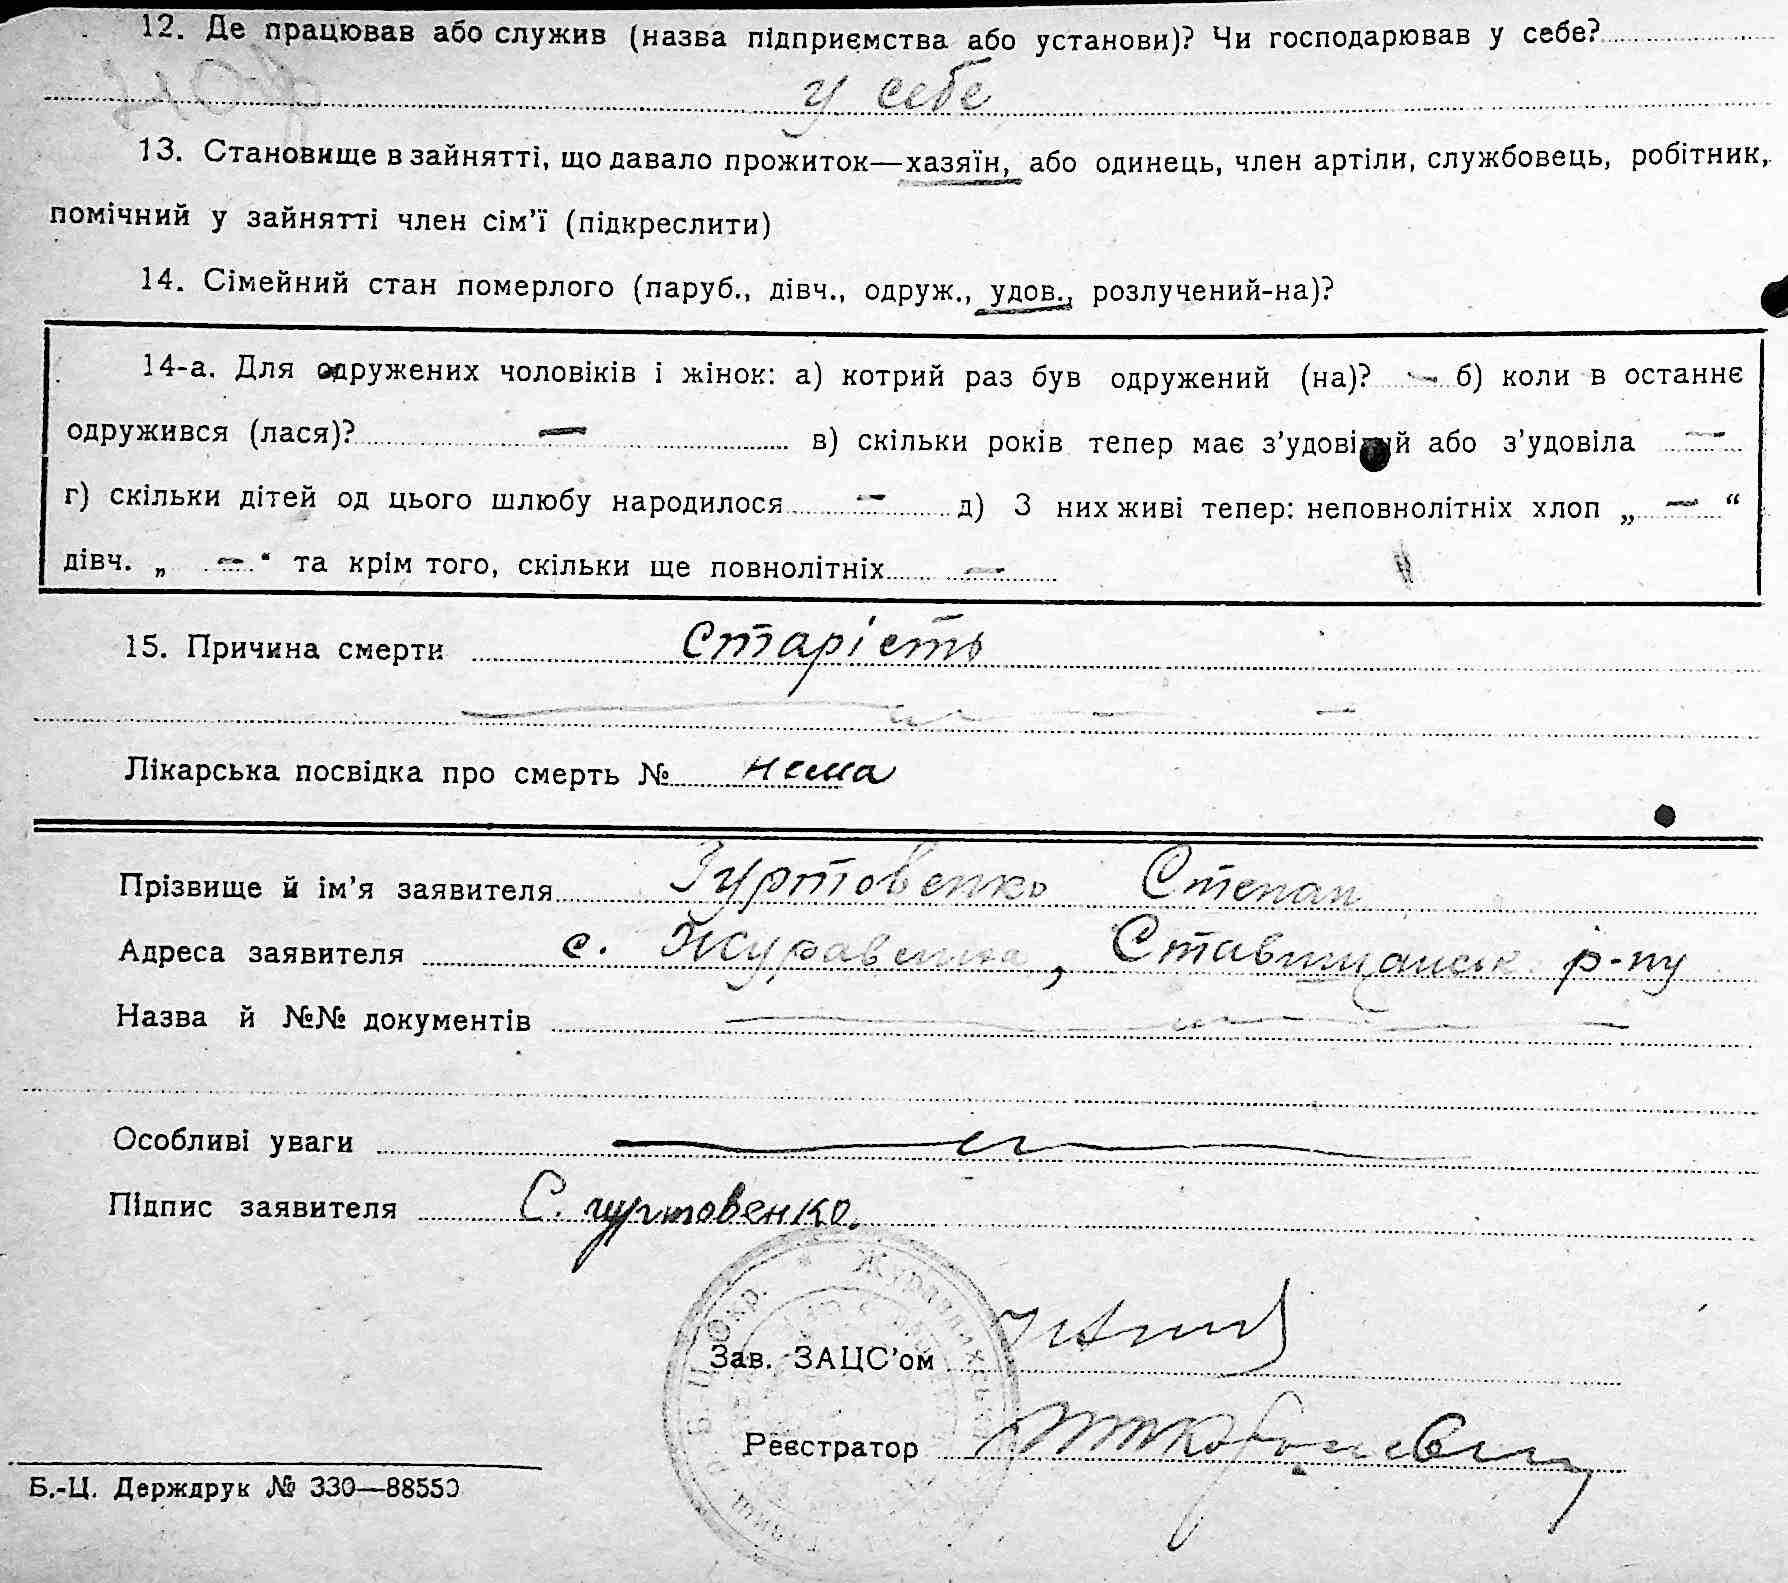 12. Де працював або служив (назва підприємства або установи)? Чи господарював у себе?
у себе
13. Становище в зайнятті, що давало прожиток—хазяїн, або одинець, член артіли, службовець, робітник,
помічний у зайнятті член сім'ї (підкреслити)
14. Сімейний стан померлого (паруб., дівч., одруж., удов., розлучений-на)?
14-а. Для одружених чоловіків і жінок: а) котрий раз був одружений (на)? — б) коли в останнє
одружився (лася)? — в) скільки років тепер має з'удовілий або з'удовіла —
г) скільки дітей од цього шлюбу народилося — д) З них живі тепер: неповнолітніх хлоп „ — “
дівч. „ — “ та крім того, скільки ще повнолітніх —
15. Причина смерти Старість
Лікарська посвідка про смерть № нема
Прізвище й ім'я заявителя Гуртовенко Степан
Адреса заявителя с. Журавлиха, Ставищанськ р-ну
Назва й №№ документів
Особливі уваги
Підпис заявителя С. Гуртовенко.
Зав. ЗАЦС'ом
Реєстратор
Б.-Ц. Держдрук № 330—88550